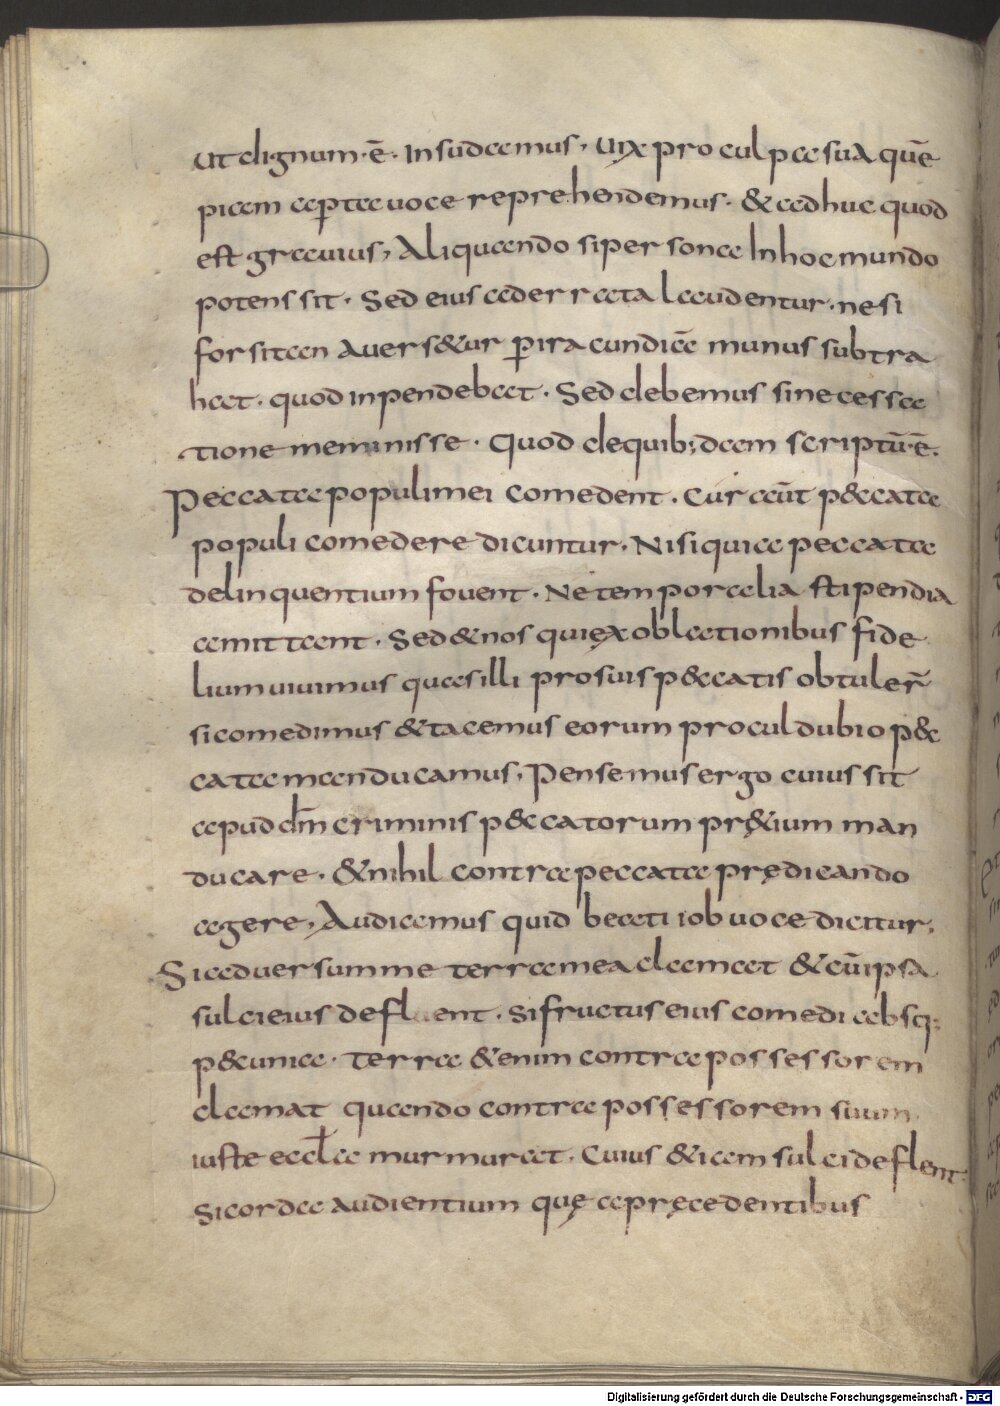 ut dignum·ē· Insudamus, uix procul pa sua quē
piam aꝑta uoce reprehendemus· & adhuc quod
est grauius, Aliquando si persona In hoc mundo
potens sit· Sed eius ad errata laudentur· ne si
forsitan auers&ur ꝑ iracundiā munus subtra
hat· quod inpendebat· Sed debemus sine cessa
tione meminisse· Quod de quib; dam scriptū·ē·
Peccata populi mei comedent· Cur aūt p&cata
populi comedere dicuntur· Nisi quia peccata
delinquentium fouent· Ne temporalia stipendia
amittant· Sed & nos qui ex oblationibus fide
lium uiuimus quas illi pro suis p&catis obtuler̄
si comedimus & tacemus eorum procul dubio p&
cata manducamus, Pensemus ergo cuius sit
apud dm̄ criminis p&catorum pr&ium man
ducare· & nihil contra peccata prędicando
agere, Audiamus quid beati iob uoce dicitur;
Si aduersum me terra mea clamat & cū ipsa
sulci eius defluent· si fructus eius comedi absq;
p&unia· terra &enim contra possessorem
clamat quando contra possessorem suum
iuste eccl̄a murmurat· Cuius &iam sulci deflent
Si corda audientium quę a pręcedentibus
Digitalisierung gefördert durch die Deutsche Forschungsgemeinschaft - DFG